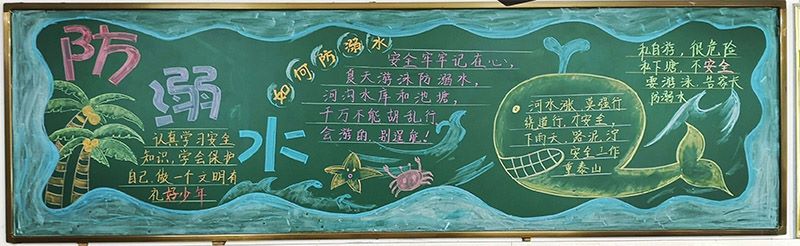 防
溺
水
认真学习安全
知识，学会保护
自己，做一个文明有
礼好少年
如何防溺水
安全牢牢记在心，
夏天游泳防溺水，
河沟水库和池塘，
千万不能胡乱行
会游的，别逞能！
河水涨，莫强行
绕道行，才安全，
下雨天，路泥泞
安全工作
重泰山
私自游，很危险
私下塘，不安全
要游泳，告家长
防溺水